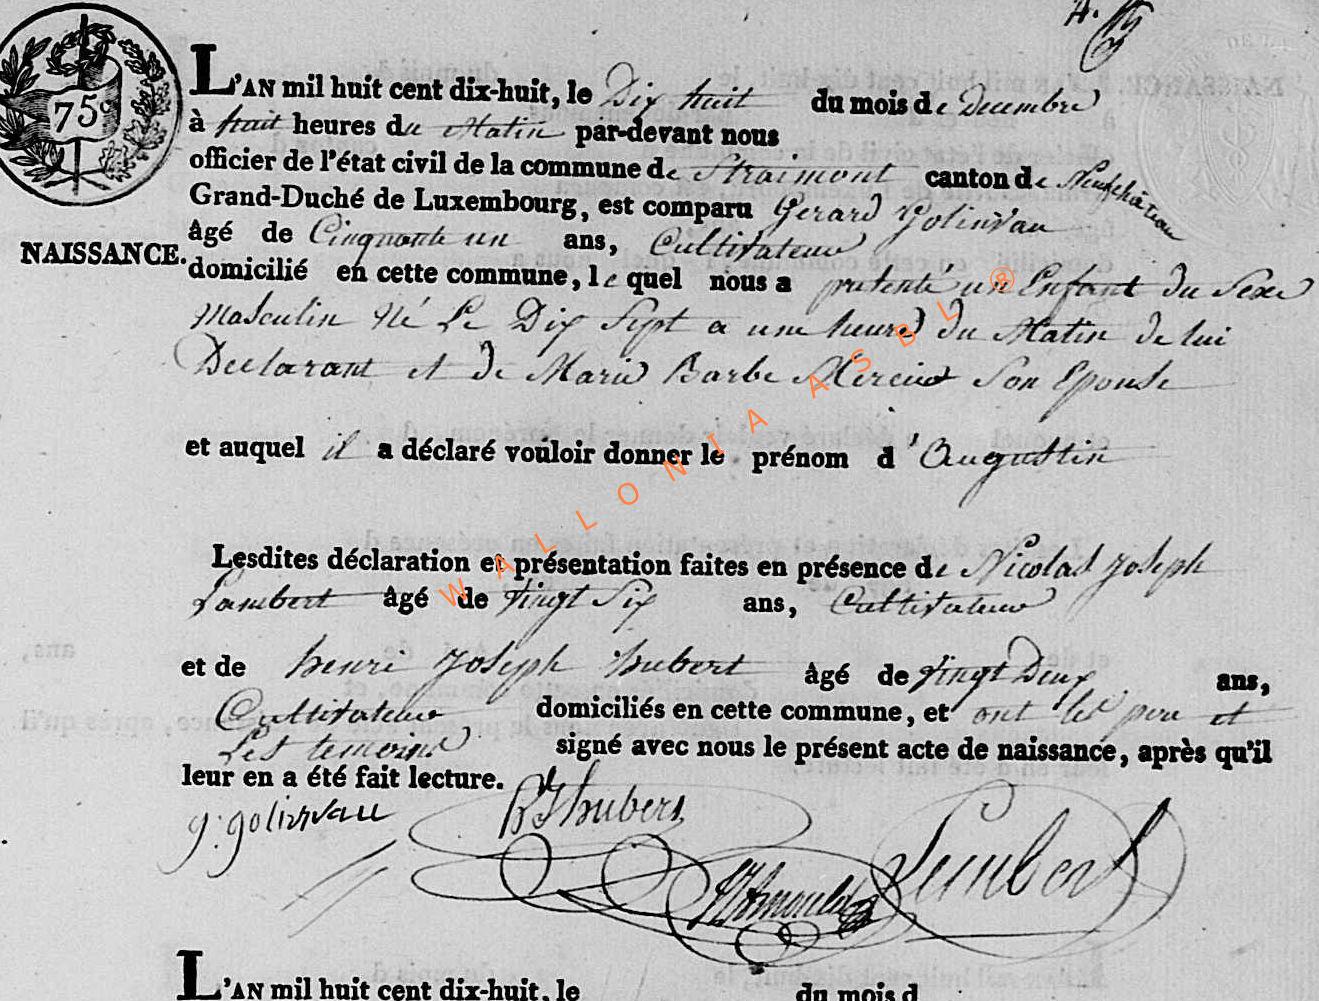 75
NAISSANCE.
L'AN mil huit cent dix-huit, le Dix huit du mois de Decembre
à huit heures du Matin par-devant nous
officier de l'état civil de la commune de Straimont canton de Neufchâteau
Grand-Duché de Luxembourg, est comparu Gerard Golinvau
âgé de Cinquante un ans, Cultivateur
domicilié en cette commune, le quel nous a presenté un Enfant du Sexe
Masculin Né Le Dix Sept a une heure du Matin de lui
Declarant et de Marie Barbe Son Epouse
et auquel il a déclaré vouloir donner le prénom d'Augustin
Lesdites déclaration et présentation faites en présence de Nicolas Joseph
Lambert âgé de vingt Six ans, Cultivateur
et de henri Joseph hubert âgé de vingt Deux ans,
Cultivateur domiciliés en cette commune, et ont les pere et
Les temoins signé avec nous le présent acte de naissance, après qu'il
leur en a été fait lecture.
g. golinvau hubert Lambert
WALLONIA ASBL ®
L'AN mil huit cent dix-huit, le du mois d